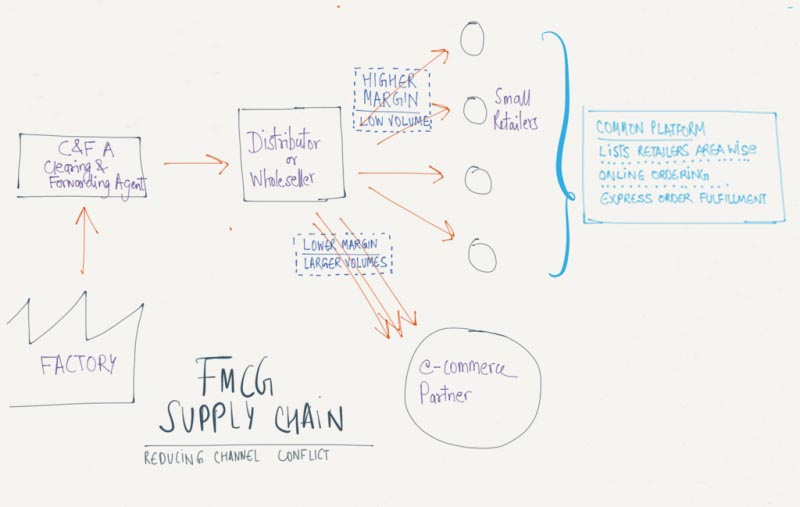 HIGHER
MARGIN
LOW VOLUME
Small
Retailers
COMMON PLATFORM
LISTS RETAILERS AREA WISE
ONLINE ORDERING
EXPRESS ORDER FULFILLMENT
C&F A
Clearing &
Forwarding Agent
Distributor
or
Wholeseller
LOWER MARGIN
LARGER VOLUMES
FACTORY
e-commerce
Partner
FMCG
SUPPLY CHAIN
REDUCING CHANNEL CONFLICT